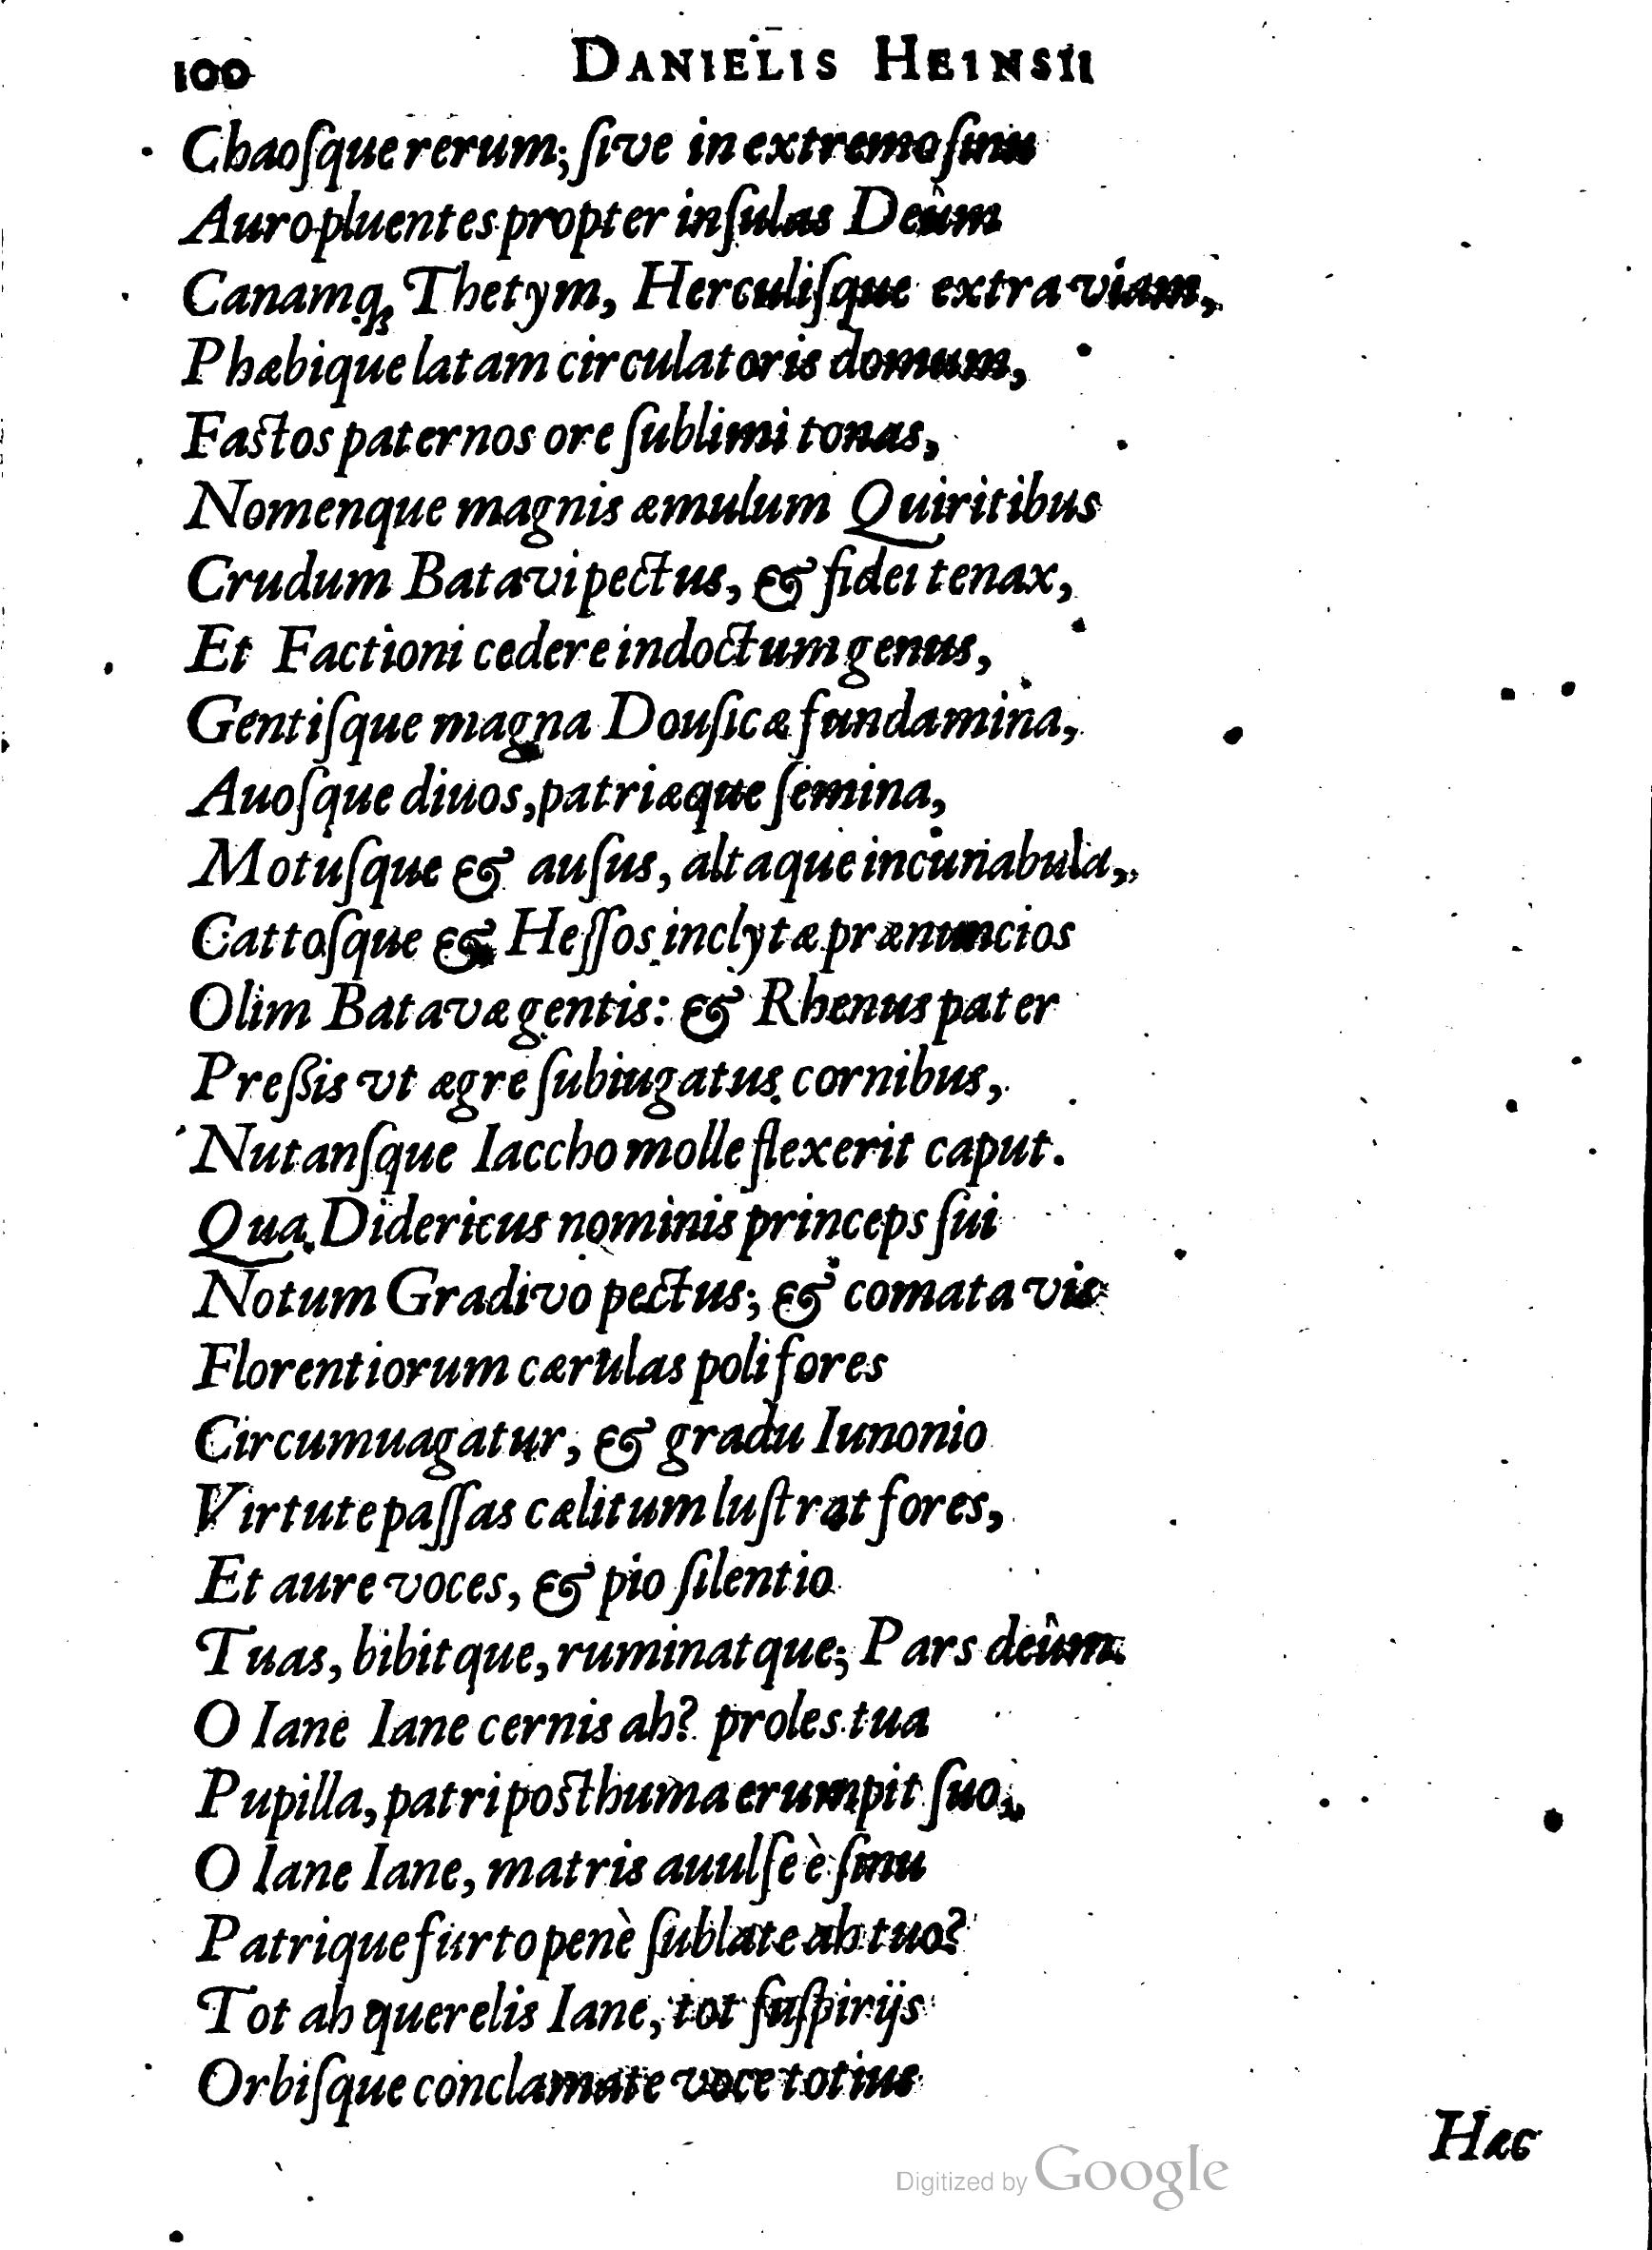 100 DANIELIS HEINSII
Chaoſque rerum; ſive in extremo ſinu
Auro pluentes propter inſulas Deûm
Canamq; Thetym, Herculiſque extra viam,
Phæbique latam circulatoris domum,
Fastos paternos ore ſublimi tonas,
Nomenque magnis æmulum Quiritibus
Crudum Batavi pectus, & fidei tenax,
Et Factioni cedere indoctum genus,
Gentiſque magna Douſicæ fundamina,
Auoſque diuos, patriæque ſemina,
Motuſque & auſus, altaque incunabula,
Cattoſque & Heſſos inclytæ prænuncios
Olim Batavæ gentis: & Rhenus pater
Preßis vt ægre ſubiugatus cornibus,
Nutanſque Iaccho molle flexerit caput.
Qua Didericus nominis princeps ſui
Notum Gradivo pectus; & comata vis
Florentiorum cærulas poli fores
Circumuagatur, & gradu Iunonio
Virtute paſſas cælitum luſtrat fores,
Et aure voces, & pio ſilentio
Tuas, bibitque, ruminatque; Pars deûm.
O Iane Iane cernis ah? proles tua
Pupilla, patri posthuma erumpit ſuo,
O Iane Iane, matris auulſe è ſinu
Patrique furto penè ſublate ah tuo?
Tot ah querelis Iane, tot ſuſpirijs
Orbiſque conclamate voce totius
Hæc
Digitized by Google